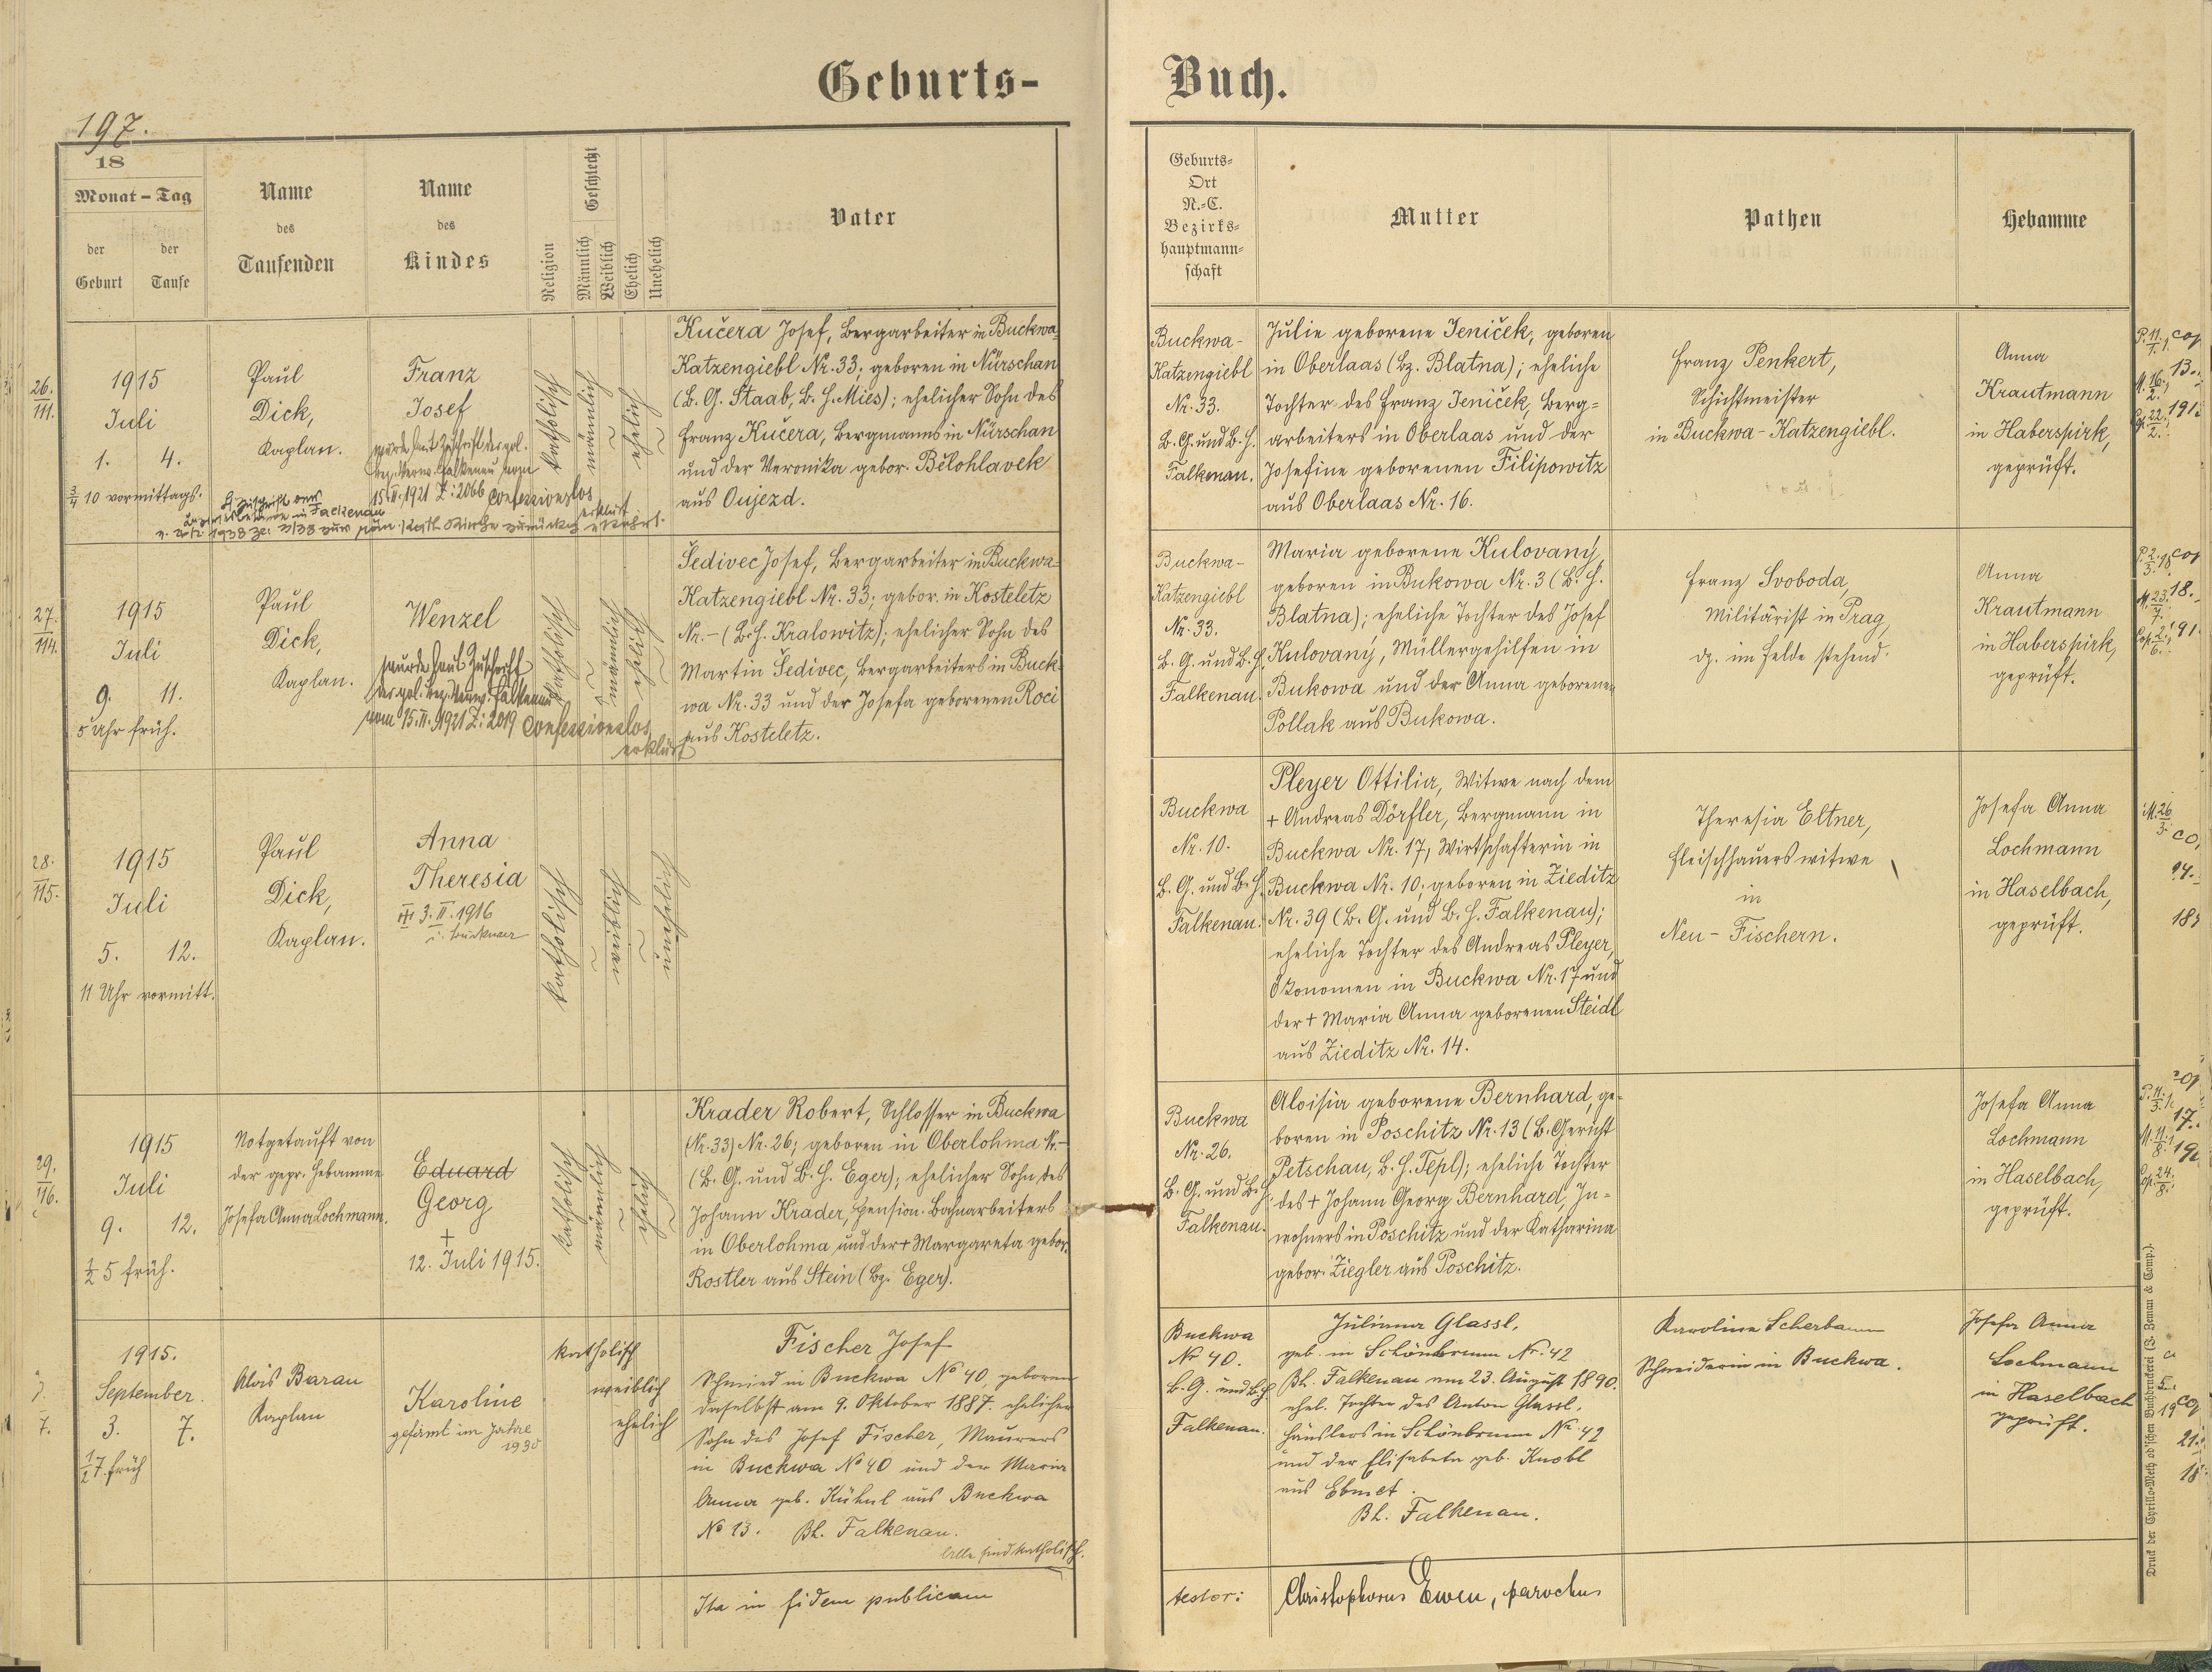 Geburts-
Buch.
197.
18
Monat - Tag
der
Geburt
der
Taufe
Name
des
Taufenden
Name
des
Kindes
Religion
Geschlecht
Männlich
Weiblich
Ehelich
Unehelich
Vater
Geburts-
Ort
N.-C.
Bezirks-
hauptmann-
schaft
Mutter
Pathen
Hebamme
26.
111.
1915
Juli
1. 4.
3/4 10 vormittags.
Paul
Dick,
Kaplan.
Franz
Josef
wurde laut Zuschrift der pol.
Bez. Verw. Falkenau vom
15. II. 1921 Z: 2066 confessionslos
erklärt
1938 zur röm. kath. Kirche
katholisch
männlich
ehelich
Kučera Josef, Bergarbeiter in Buckwa-
Katzengiebl Nr. 33; geboren in Nürschan
(B. G. Staab, B. H. Mies); ehelicher Sohn des
Franz Kučera, Bergmanns in Nürschan
und der Veronika gebor. Bělohlavek
aus Oujezd.
Buckwa-
Katzengiebl
Nr. 33.
B. G. und B. H.
Falkenau.
Julie geborene Jeniček, geboren
in Oberlaas (Bz. Blatna); eheliche
Tochter des Franz Jeniček, Berg=
arbeiters in Oberlaas und der
Josefine geborenen Filipowitz
aus Oberlaas Nr. 16.
Franz Penkert,
Schichtmeister
in Buckwa-Katzengiebl.
Anna
Krautmann
in Haberspirk,
geprüft.
27.
114.
1915
Juli
9. 11.
5 Uhr früh.
Paul
Dick,
Kaplan.
Wenzel
wurde laut Zuschrift
der pol. Bez. Verw. Falkenau
vom 15. II. 1921 Z: 2019 confessionslos
erklärt
katholisch
männlich
ehelich
Šedivec Josef, Bergarbeiter in Buckwa-
Katzengiebl Nr. 33; gebor. in Kosteletz
Nr. - (B. H. Kralowitz); ehelicher Sohn des
Martin Šedivec, Bergarbeiters in Buck-
wa Nr. 33 und der Josefa geborenen Roci
aus Kosteletz.
Buckwa-
Katzengiebl
Nr. 33.
B. G. und B. H.
Falkenau.
Maria geborene Kulovaný,
geboren in Bukowa Nr. 3 (B. H.
Blatna); eheliche Tochter des Josef
Kulovaný, Müllergehilfen in
Bukowa und der Anna geborenen
Pollak aus Bukowa.
Franz Svoboda,
Militärist in Prag,
dz. im Felde stehend.
Anna
Krautmann
in Haberspirk,
geprüft.
28.
115.
1915
Juli
5. 12.
11 Uhr vormitt.
Paul
Dick,
Kaplan.
Anna
Theresia
3. II. 1916
katholisch
weiblich
unehelich
Buckwa
Nr. 10.
B. G. und B. H.
Falkenau.
Pleyer Ottilia, Witwe nach dem
+ Andreas Dörfler, Bergmann in
Buckwa Nr. 17, Wirtschafterin in
Buckwa Nr. 10; geboren in Zieditz
Nr. 39 (B. G. und B. H. Falkenau);
eheliche Tochter des Andreas Pleyer,
Ökonomen in Buckwa Nr. 17 und
der + Maria Anna geborenen Steidl
aus Zieditz Nr. 14.
Theresia Eltner,
Fleischhauerswitwe
in
Neu-Fischern.
Josefa Anna
Lochmann
in Haselbach,
geprüft.
29.
116.
1915
Juli
9. 12.
1/2 5 früh.
Notgetauft von
der gepr. Hebamme
Josefa Anna Lochmann.
Eduard
Georg
+
12. Juli 1915.
katholisch
männlich
ehelich
Krader Robert, Schlosser in Buckwa
(Nr. 33) Nr. 26; geboren in Oberlohma Nr. -
(B. G. und B. H. Eger); ehelicher Sohn des
Johann Krader, pension. Bahnarbeiters
in Oberlohma und der + Margareta gebor.
Rostler aus Stein (Bz. Eger).
Buckwa
Nr. 26.
B. G. und B. H.
Falkenau.
Aloisia geborene Bernhard, ge-
boren in Poschitz Nr. 13 (B. Gericht
Petschau, B. H. Tepl); eheliche Tochter
des + Johann Georg Bernhard, In=
wohners in Poschitz und der Katharina
gebor. Ziegler aus Poschitz.
Josefa Anna
Lochmann
in Haselbach,
geprüft.
7.
1915.
September
3. 7.
1/2 7 früh
Alois Baran
Kaplan
Karoline
gefirmt im Jahre
1930
katholisch
weiblich
ehelich
Fischer Josef
Schmied in Buckwa No 40, geboren
daselbst am 9. Oktober 1887. ehelicher
Sohn des Josef Fischer, Maurers
in Buckwa No 40 und der Maria
Anna geb. Kühnl aus Buckwa
No 13. Bh. Falkenau.
Alle sind katholisch.
Buckwa
Nr 40.
B. G. und B. H.
Falkenau.
Juliana Glassl,
geb. in Schönbrunn Nr. 42
Bh. Falkenau am 23. August 1890.
ehel. Tochter des Anton Glassl,
Häuslers in Schönbrunn Nr. 42
und der Elisabeta geb. Knobl
aus Ebmet.
Bh. Falkenau.
Karoline Scherbaum
Schneiderin in Buckwa.
Josefa Anna
Lochmann
in Haselbach
geprüft.
Ita in fidem publicam
testor:
Christophorus Ewen, parochus
Druck der Cyrillo-Method'schen Buchdruckerei (J. Zeman & Comp.).